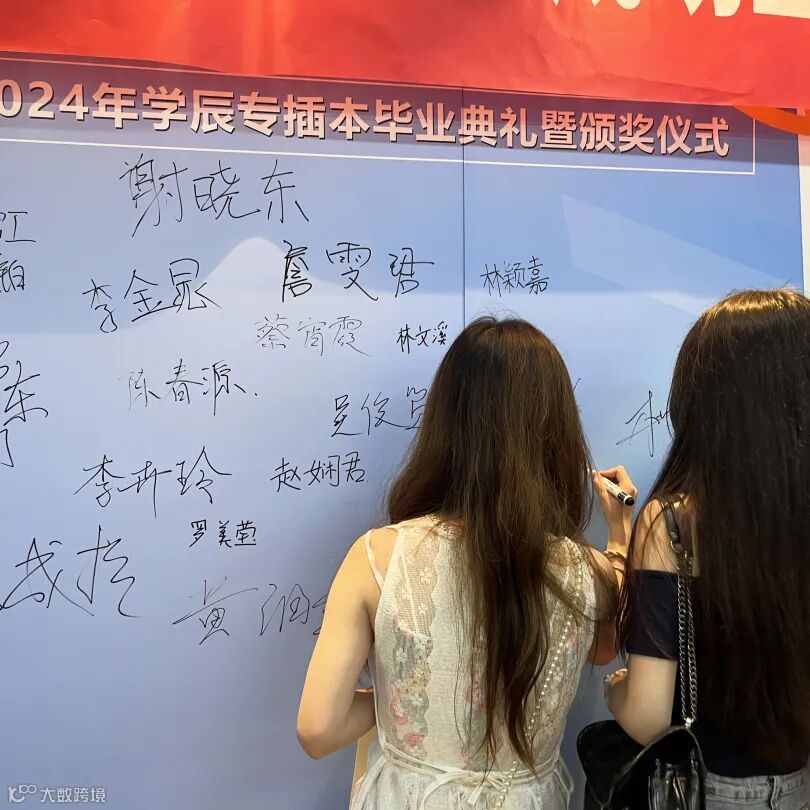 024年学辰专插本毕业典礼暨颁奖仪式
谢晓东
江
李金晁
詹雯君
林颖嘉
蔡宵霞
林文溪
陈春源.
吴俊
李卉玲
赵娴君
罗美莹
黄润
大数跨境